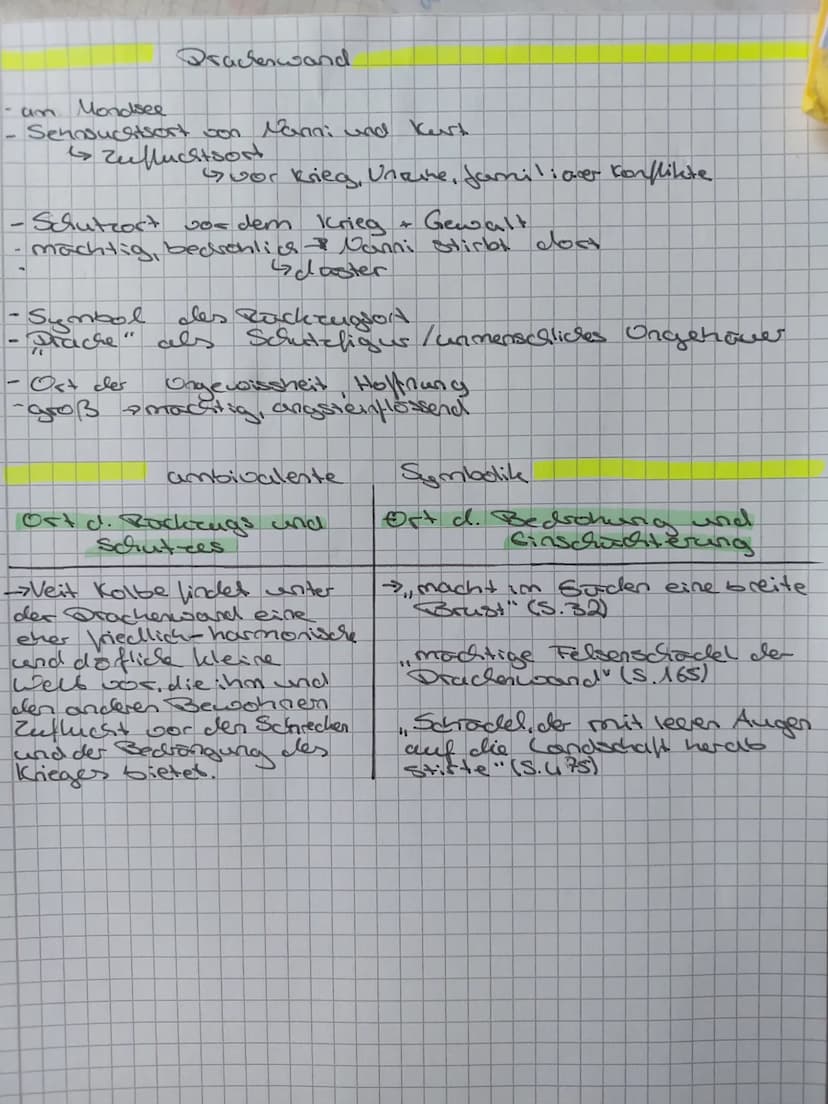 Drachenwand
- am Mondsee
- Sehnsuchtsort von Nanni und Kurt
↳ Zufluchtsort
↳ vor Krieg, Unruhe, familiärer Konflikte
- Schutzort vor dem Krieg + Gewalt
- mächtig, bedrohlich → Nanni stirbt dort
↳ düster
- Symbol des Rückzugsort
- "Drache" als Schutzfigur / unmenschliches Ungeheuer
- Ort der Ungewissheit, Hoffnung
- groß → mächtig, angsteinflössend
ambivalente Symbolik
Ort d. Rückzugs und
Schutzes
Ort d. Bedrohung und
Einschüchterung
→ Veit Kolbe findet unter
der Drachenwand eine
eher friedlich-harmonische
und döfliche kleine
Welt vor, die ihm und
den anderen Bewohnern
Zuflucht vor den Schrecken
und der Bedrohung des
Krieges bietet.
→ „macht im Süden eine breite
Brust" (S. 32)
„mächtige Felsenschädel der
Drachenwand" (S. 165)
„Schädel, der mit leeren Augen
auf die Landschaft herab
stierte" (S. 475)